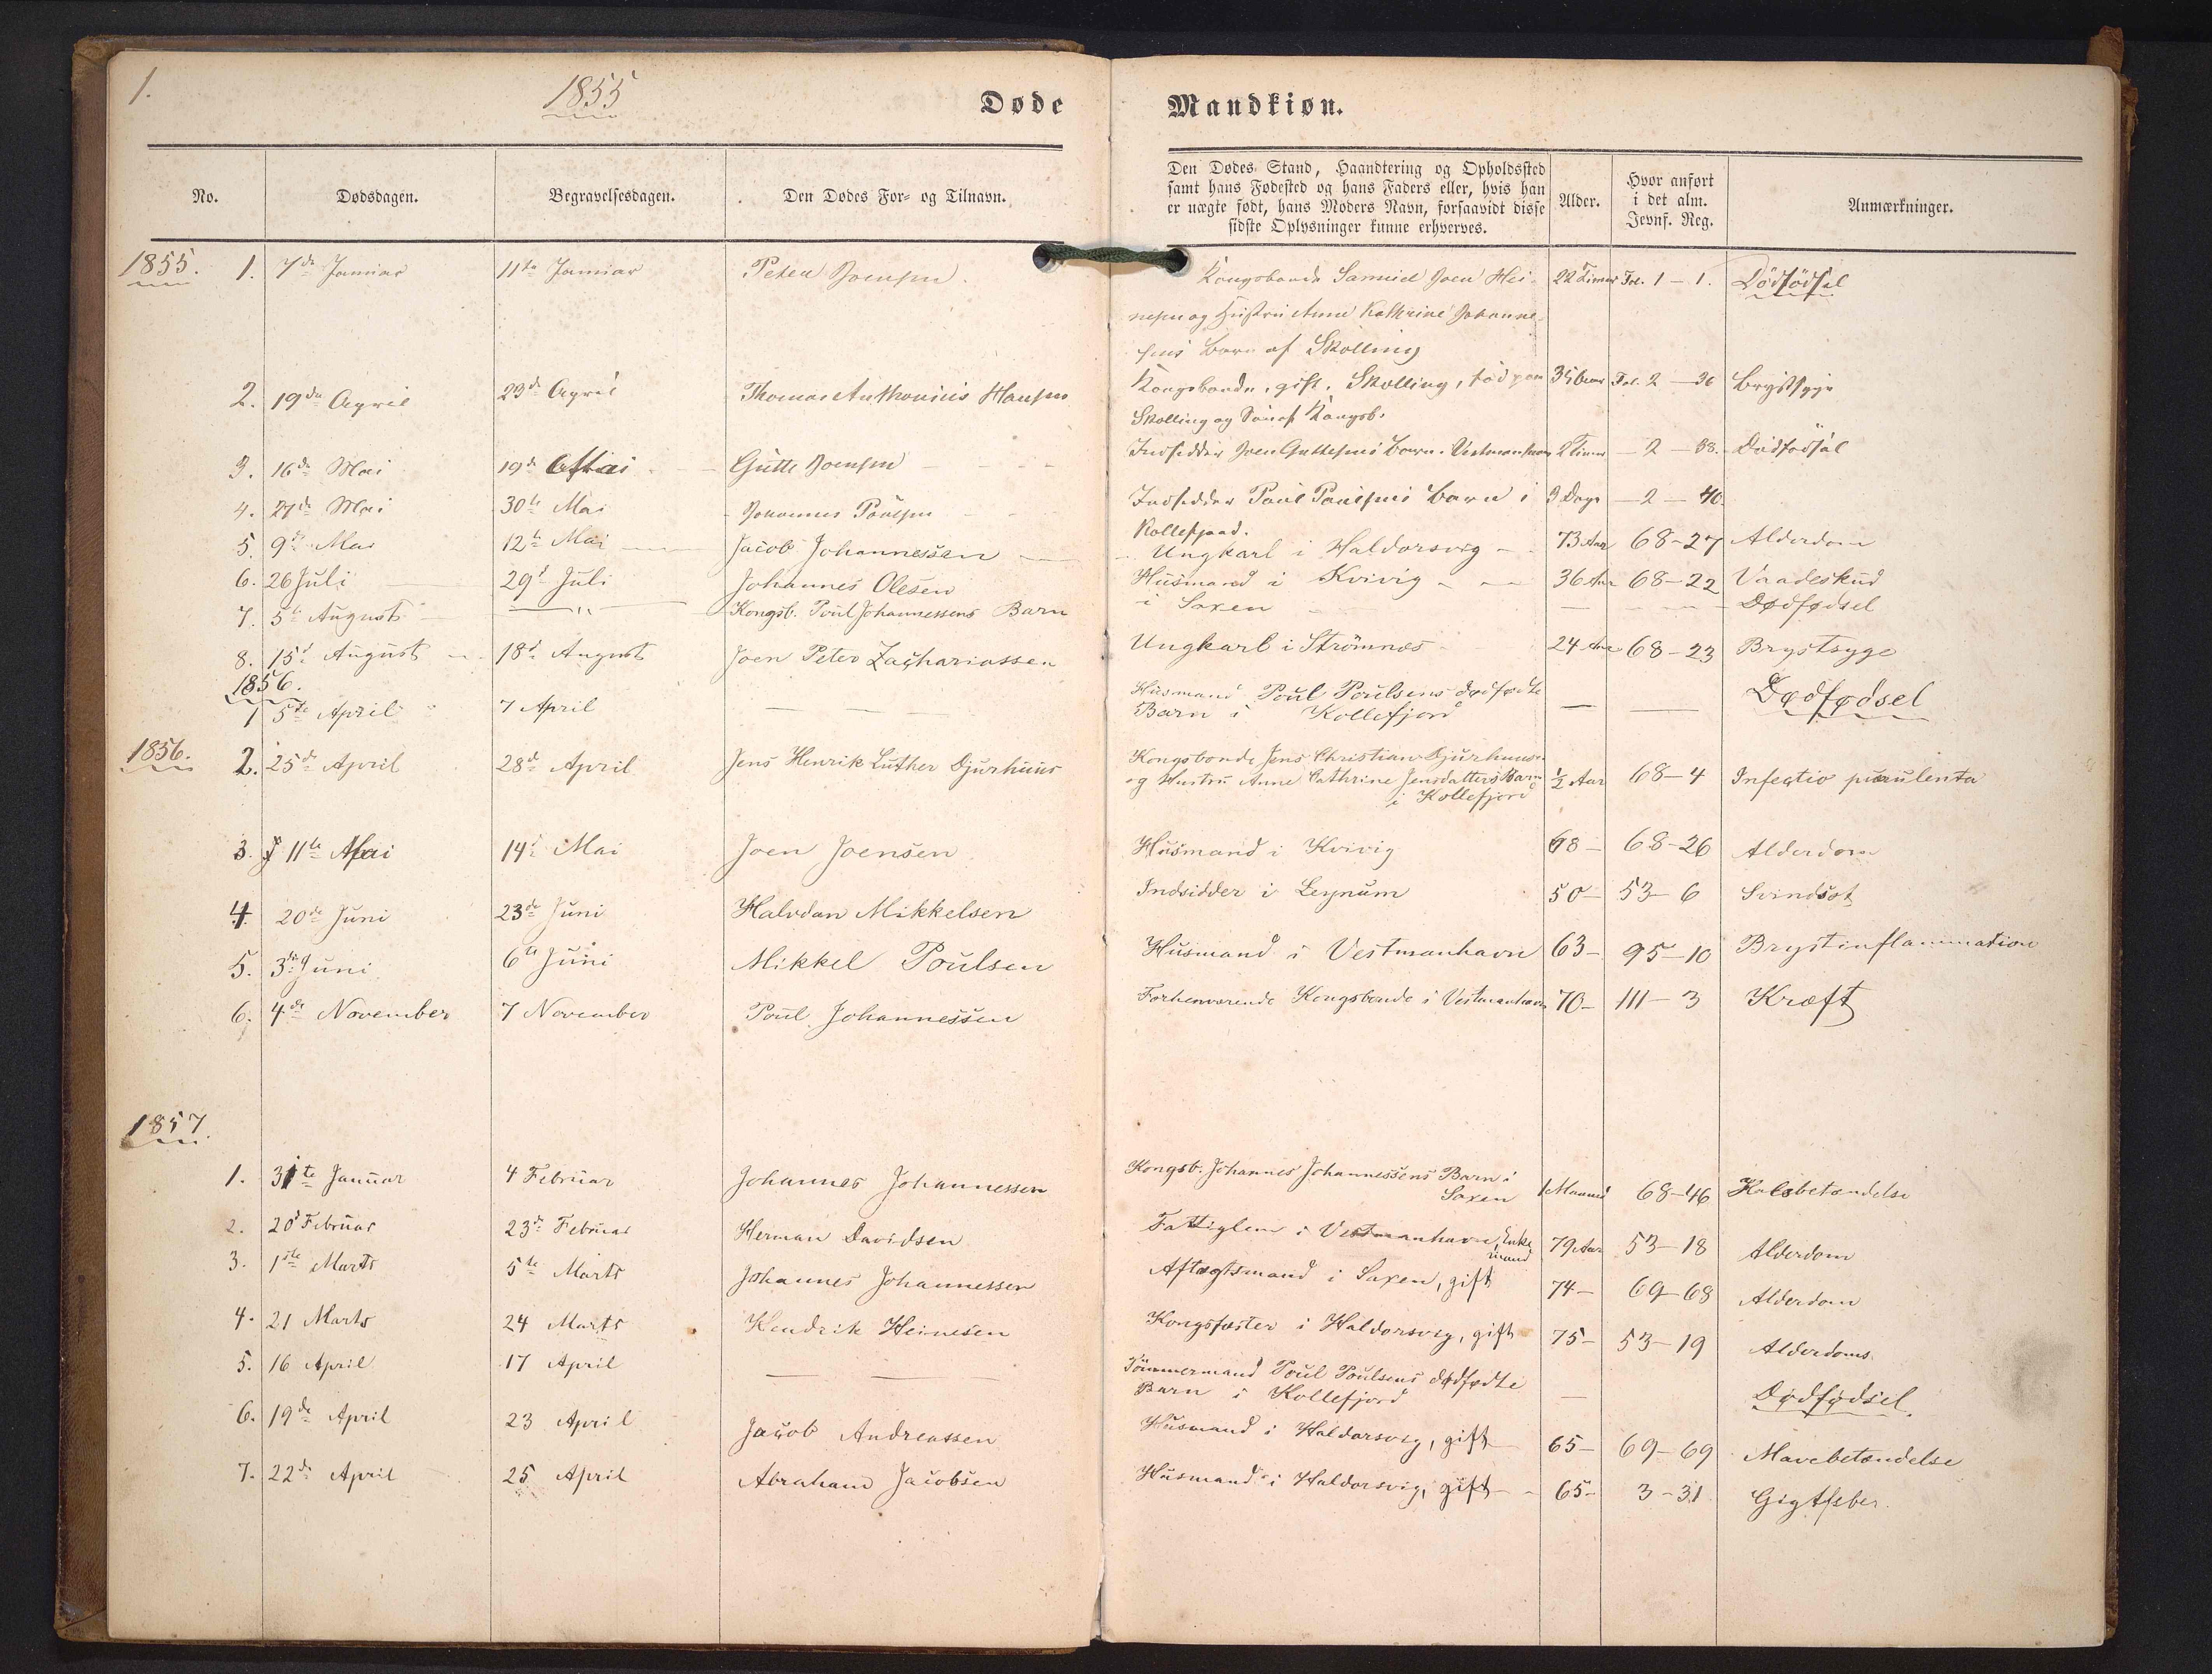 1.
1855
Døde
Mandkiøn.
No.
Dødsdagen.
Begravelsesdagen.
Den Dødes For- og Tilnavn.
Den Dødes Stand, Haandtering og Opholdssted
samt hans Fødested og hans Faders eller, hvis han
er uægte født, hans Moders Navn, forsaavidt disse
sidste Oplysninger kunne erhverves.
Alder.
Hvor anført
i det alm.
Jevnf. Reg.
Anmærkninger.
1855. 1. 7de Januar 11te Januar Peter Joensen. Kongsbonde Samuel Joen Hei- 22 Timer Fol. 1 – 1. Dödfödsel
nesen og Hustru Anna Kathrine Johanne-
sens Barn af Skælling
2. 19de April 23de April Thomas Anthonius Hansen Kongsbonde, gift, Skælling, född paa 35 Fol. 2 – 36 Brystsyge
Skælling og Kongsb.
3. 16de Mai 19de Mai Gutte Joensen Indsidder Joen Guttesens Barn. Vestmanhavn 2 Timer – 2 – 38. Dödfödsel
4. 27de Mai 30te Mai Johannes Poulsen Indsidder Poul Poulsens Barn i 3 Dage – 2 – 40.
Kollefjord.
5. 9de Mai 12te Mai Jacob Johannessen Ungkarl i Haldorsvig 73 Aar 68–27 Alderdom
6. 26 Juli 29de Juli Johannes Olesen Husmand i Kvivig 36 Aar 68–22 Vaadeskud
7. 5te August – " – Kongsb. Poul Johannessens Barn i Saxen – – Dødfødsel
8. 15de August 18de August Joen Peter Zachariassen Ungkarl i Strömnæs 24 Aar 68–23 Brystsyge
1856.
1 5te April 7 April – – Husmand Poul Poulsens dødfødte – – Dødfødsel
Barn i Kollefjord
1856. 2. 25de April 28de April Jens Henrik Luther Djurhuus Kongsbonde Jens Christian Djurhuus
og Hustru Anne Cathrine Jensdatters Barn ½ Aar 68–4 Infectio purulenta
i Kollefjord
3. 11te Mai 14de Mai Joen Joensen Husmand i Kvivig 68 – 68–26 Alderdom
4. 20de Juni 23de Juni Halvdan Mikkelsen Indsidder i Leynum 50 – 53–6 Svindsot
5. 3de Juni 6te Juni Mikkel Poulsen Husmand i Vestmanhavn 63 – 95–10 Brystinflammation
6. 4de November 7 November Poul Johannessen Forhenværende Kongsbonde i Vestmanhavn 70 – 111–3 Kræft
1857.
1. 31te Januar 4 Februar Johannes Johannessen Kongsb. Johannes Johannessens Barn i
Saxen 1 Maaned 68–46 Halsbetændelse
2. 20de Februar 23de Februar Herman Davidsen Fattiglem i Vestmanhavn, Enke
mand 79 Aar 53–18 Alderdom
3. 1ste Marts 5te Marts Johannes Johannessen Aftægtsmand i Saxen, gift 74 – 69–68 Alderdom
4. 21 Marts 24 Marts Hendrik Heinesen Kongsfæster i Haldorsvig, gift 75 – 53–19 Alderdoms
5. 16 April 17 April – – Tömmermand Poul Poulsens dødfødte
Barn i Kollefjord – Dødfødsel.
6. 19de April 23 April Jacob Andreassen Husmand i Haldorsvig, gift 65 – 69–69 Mavebetændelse
7. 22de April 25 April Abraham Jacobsen Husmand i Haldorsvig, gift 65 – 3–31 Gigtfeber.